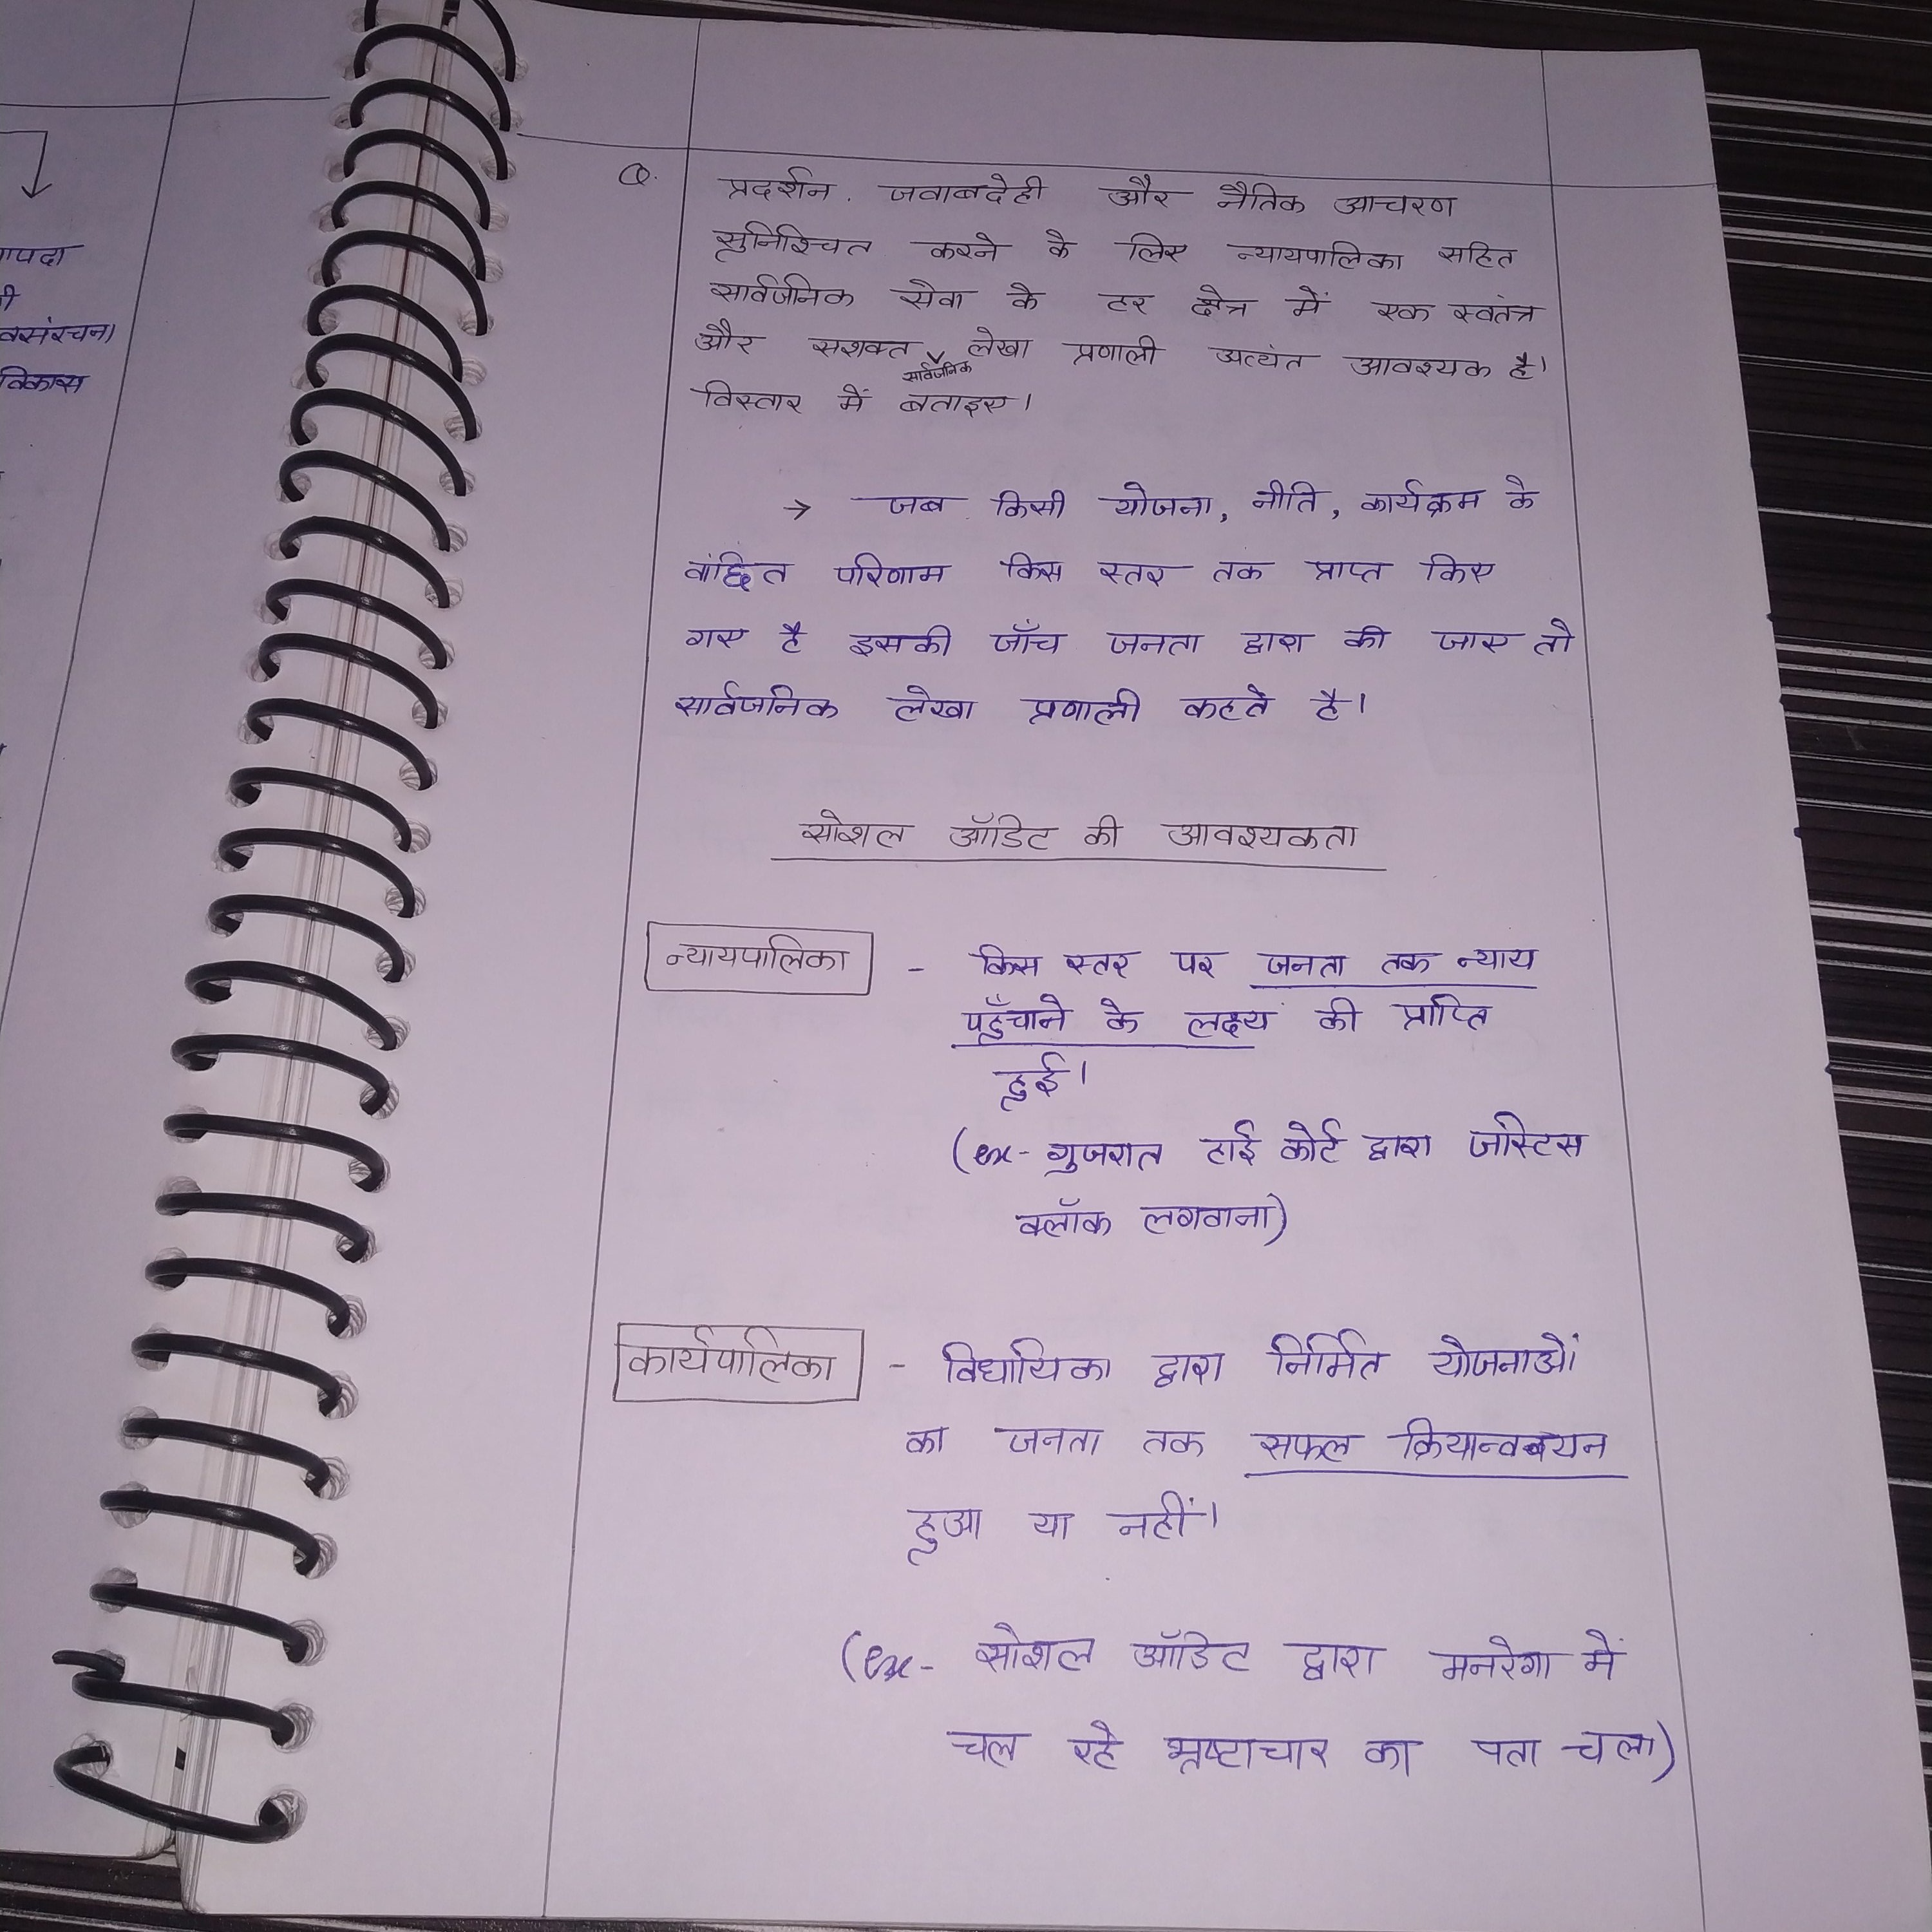 ापदा
ी
वसंरचना
विकास
Q. प्रदर्शन. जवाबदेही और नैतिक आचरण
सुनिश्चित करने के लिए न्यायपालिका सहित
सार्वजनिक सेवा के हर क्षेत्र में एक स्वतंत्र
और सशक्त सार्वजनिक लेखा प्रणाली अत्यंत आवश्यक है।
विस्तार में बताइए।
→ जब किसी योजना, नीति, कार्यक्रम के
वांछित परिणाम किस स्तर तक प्राप्त किए
गए है इसकी जाँच जनता द्वारा की जाए तो
सार्वजनिक लेखा प्रणाली कहते है।
सोशल ऑडिट की आवश्यकता
न्यायपालिका - किस स्तर पर जनता तक न्याय
पहुँचाने के लक्ष्य की प्राप्ति
हुई।
(ex- गुजरात हाई कोर्ट द्वारा जस्टिस
क्लॉक लगवाना)
कार्यपालिका - विधायिका द्वारा निर्मित योजनाओं
का जनता तक सफल क्रियान्वयन
हुआ या नहीं।
(ex- सोशल ऑडिट द्वारा मनरेगा में
चल रहे भ्रष्टाचार का पता चला)